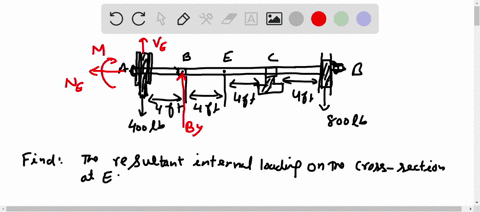 M
V_E
N_E
A
B
E
C
B
4 ft
4 ft
4 ft
4 ft
400 lb
By
800 lb
Find:- The resultant internal loading on the cross-section
at E.